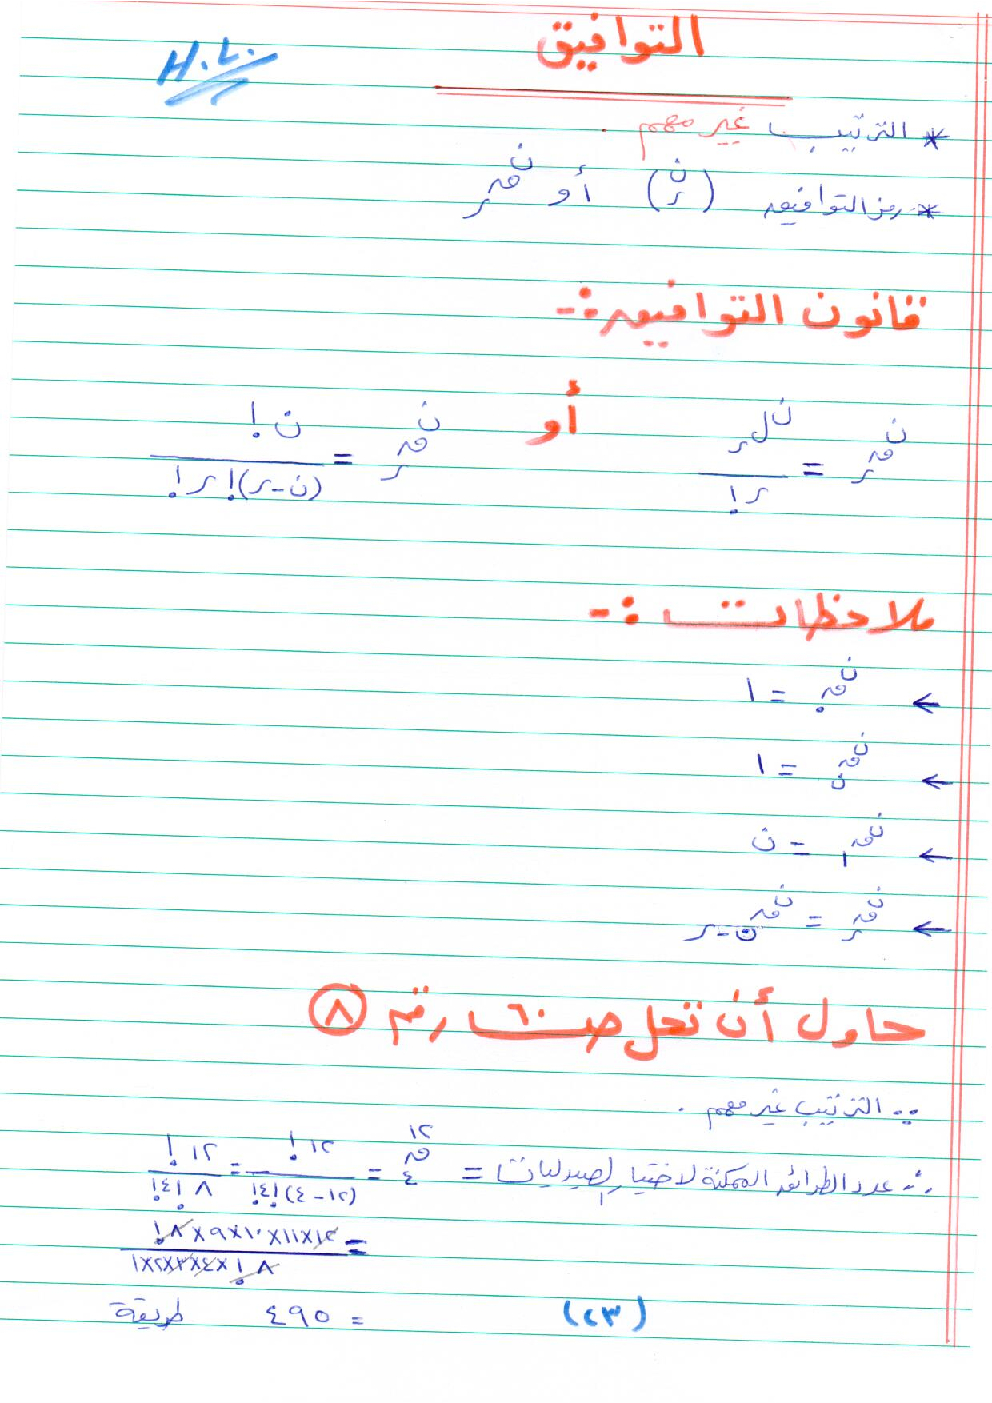 التوافيق
H.L.
* الترتيب غير مهم .
* رمز التوافيق (ن ر) أو ن ق ر
قانون التوافيق :-
ن ق ر = ن ل ر / ر! أو ن ق ر = ن! / (ن-ر)! ر!
ملاحظات :-
← ن ق ٠ = ١
← ن ق ن = ١
← ن ق ١ = ن
← ن ق ر = ن ق ن-ر
حاول أن تحل صـ ٦٠ ـا رقم ٨
∵ الترتيب غير مهم .
∴ عدد الطرائق الممكنة لاختيار الصيدليات = ١٢ ق ٤ = ١٢! / (١٢-٤)! ٤! = ١٢! / ٨! ٤!
= ١٢×١١×١٠×٩×٨! / ٨! ×٤×٣×٢×١
= ٤٩٥ طريقة
(٢٣)